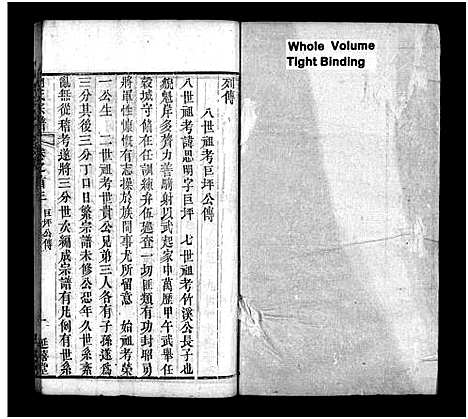 Whole Volume
Tight Binding
列傳
八世祖考巨坪公傳
八世祖考諱思明字巨坪 七世祖考竹溪公長子也
貌魁岸多膂力善騎射以武起家中萬歷甲午武舉任
穀城守備在任訓練弁伍廵查一切匪類有功封昭勇
將軍性慷慨有志操於族間事尤所留意 始祖考榮
一公生 二世祖考世貴公兄弟三人各有子孫遂爲
三分其後三分丁口日繁宗譜未修公恐年久世系紊
亂無從稽考遂將三分世次編成宗譜有凡例有世系
巨坪公傳
一
延禧堂